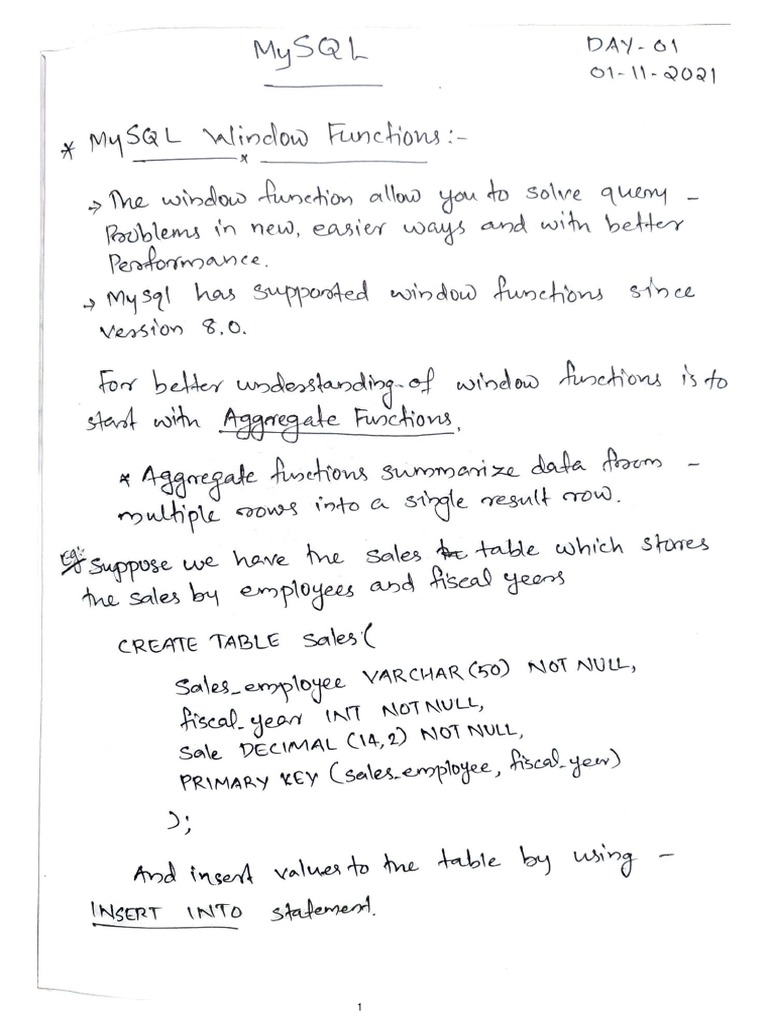 MySQL
DAY-01
01-11-2021
* MySQL Window Functions:-
→ The window function allow you to solve query -
Problems in new, easier ways and with better
Performance.
→ Mysql has supported window functions since
version 8.0.
For better understanding of window functions is to
start with Aggregate Functions.
* Aggregate functions summarize data from -
multiple rows into a single result row.
Eg: Suppose we have the sales table which stores
the sales by employees and fiscal years
CREATE TABLE Sales(
Sales_employee VARCHAR(50) NOT NULL,
fiscal_year INT NOT NULL,
Sale DECIMAL (14,2) NOT NULL,
PRIMARY KEY (sales_employee, fiscal_year)
);
And insert values to the table by using -
INSERT INTO statement.
1